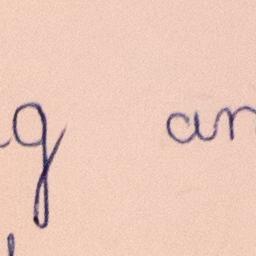 g an